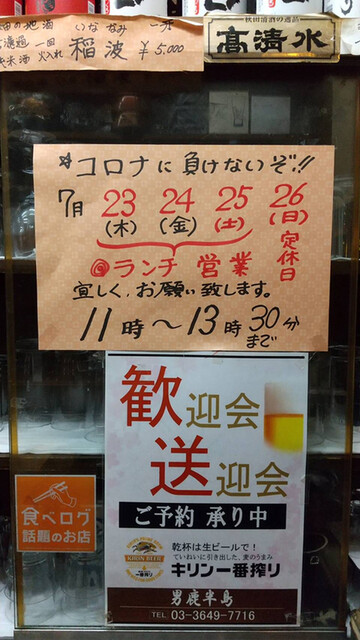 田の地酒 いななみ 一升
濾過 一回
米酒 火入れ 稲波 ¥5,000
秋田清酒の逸品
高清水
*コロナに負けないぞ!!
7月 23 24 25 26
(木) (金) (土) (日)
定休日
◎ランチ 営業
宜しく、お願い致します。
11時〜13時30分
まで
歓迎会
送迎会
ご予約 承り中
食べログ
話題のお店
KIRIN BEER
一番搾り
乾杯は生ビールで!
ていねいに引き出した、麦のうまみ
キリン一番搾り
男鹿半島
TEL 03-3649-7716